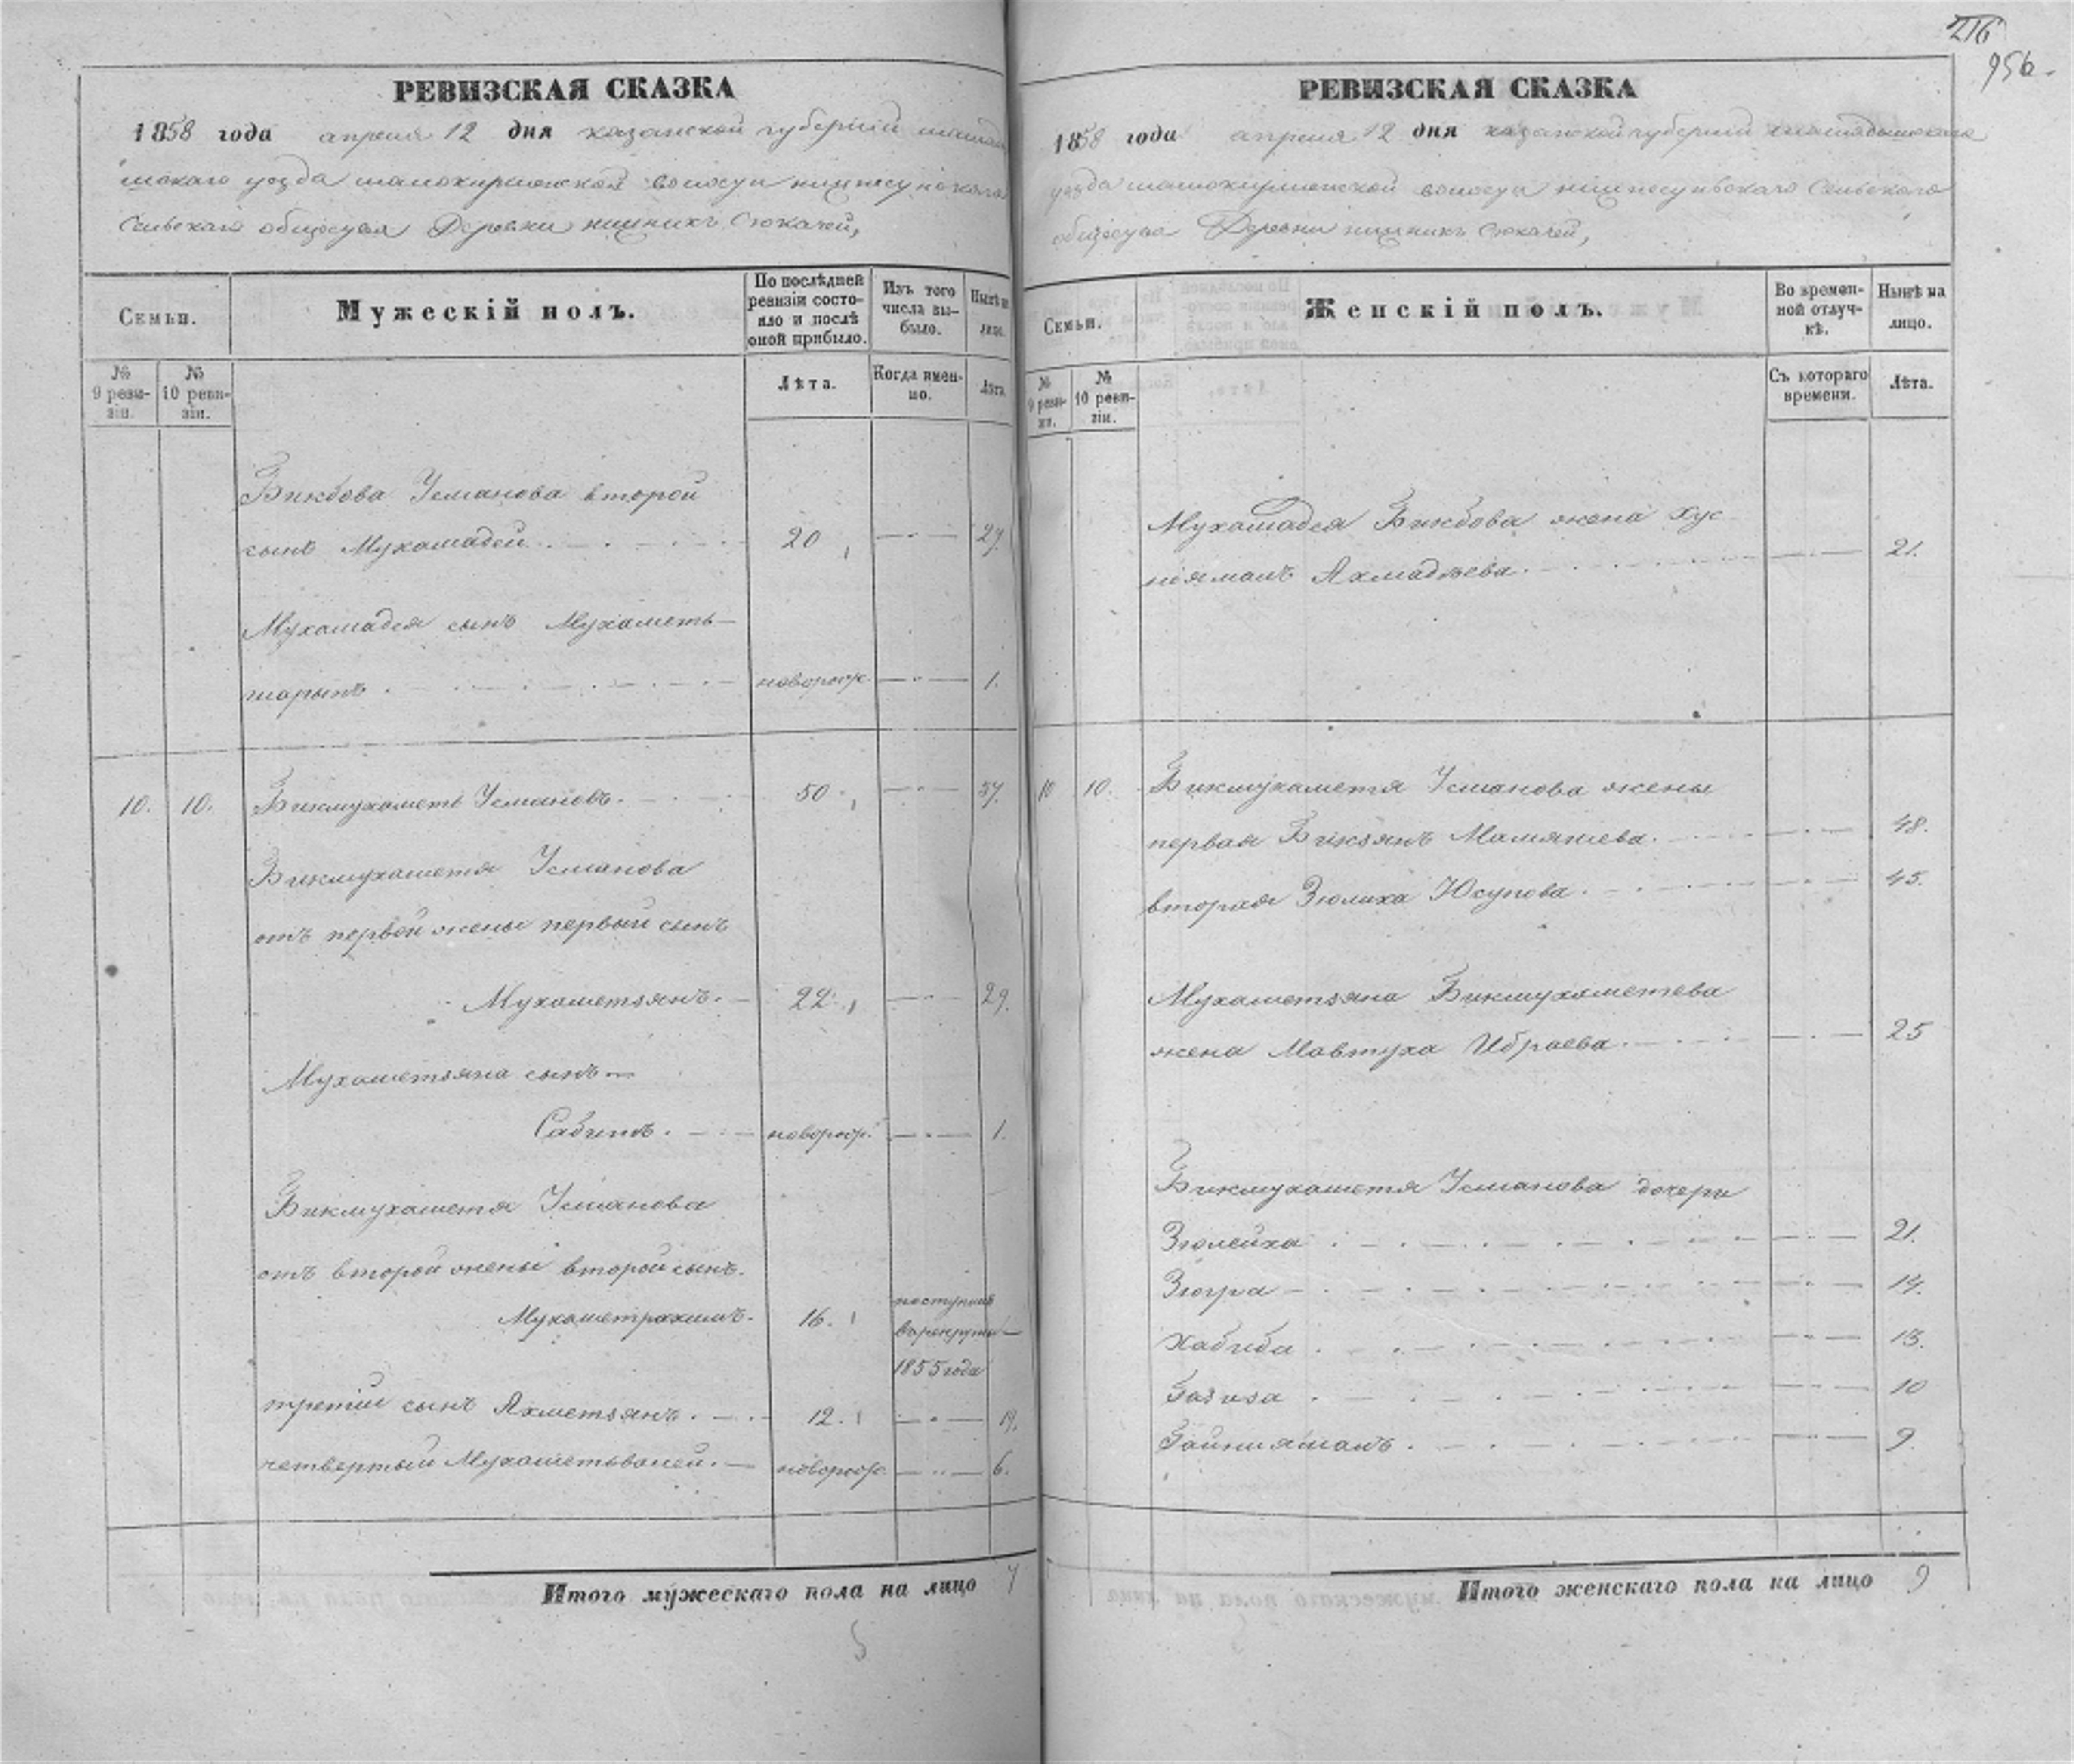 216
956.
РЕВИЗСКАЯ СКАЗКА
1858 года апреля 12 дня казанской губерніи мамады
шскаго уезда
Сельскаго общества Деревни нижнихъ Сюкачей,
Семьи.
Мужескій полъ.
По послѣдней ревизіи состояло и послѣ оной прибыло.
Изъ того числа выбыло.
Нынѣ на лицо.
№ 9 ревизіи.
№ 10 ревизіи.
Лѣта.
Когда именно.
Лѣта.
Бикбова Усманова второй
сынъ Мухамадей 20 27
Мухамадея сынъ Мухаметь
шарыпъ новорож 1.
10. 10. Бикмухаметь Усмановъ. 50 57.
Бикмухаметя Усманова
отъ первой жены первый сынъ
Мухаметзянъ. 22 29.
Мухаметзяна сынъ
Сабитъ. новорож. 1.
Бикмухаметя Усманова
отъ второй жены второй сынъ.
Мухаметрахимъ. 16. поступилъ
в рекруты
1855 года
третій сынъ Ахметзянъ. 12. 19.
четвертый Мухаметьвалей. новорож 6.
Итого мужескаго пола на лицо 7
РЕВИЗСКАЯ СКАЗКА
1858 года апреля 12 дня казанской губерніи мамадышскаго
уезда волости Сельскаго
общества Деревни нижнихъ Сюкачей,
Семьи.
Женскій полъ.
Во временной отлучкѣ.
Нынѣ на лицо.
№ 9 ревизіи.
№ 10 ревизіи.
Съ котораго времени.
Лѣта.
Мухамадея Бикбова жена Хус
ниямалъ Ахмадѣева. 21.
10 10. Бикмухаметя Усманова жены
первая Бикзянъ Мамяшева. 48.
вторая Зюлиха Юсупова. 45.
Мухаметзяна Бикмухаметева
жена Мавтуха Ибраева. 25
Бикмухаметя Усманова дочери
Зюлейха 21.
Зюгра 14.
Хабиба 13.
Газиза 10
Гайниямалъ. 9.
Итого женскаго пола на лицо 9